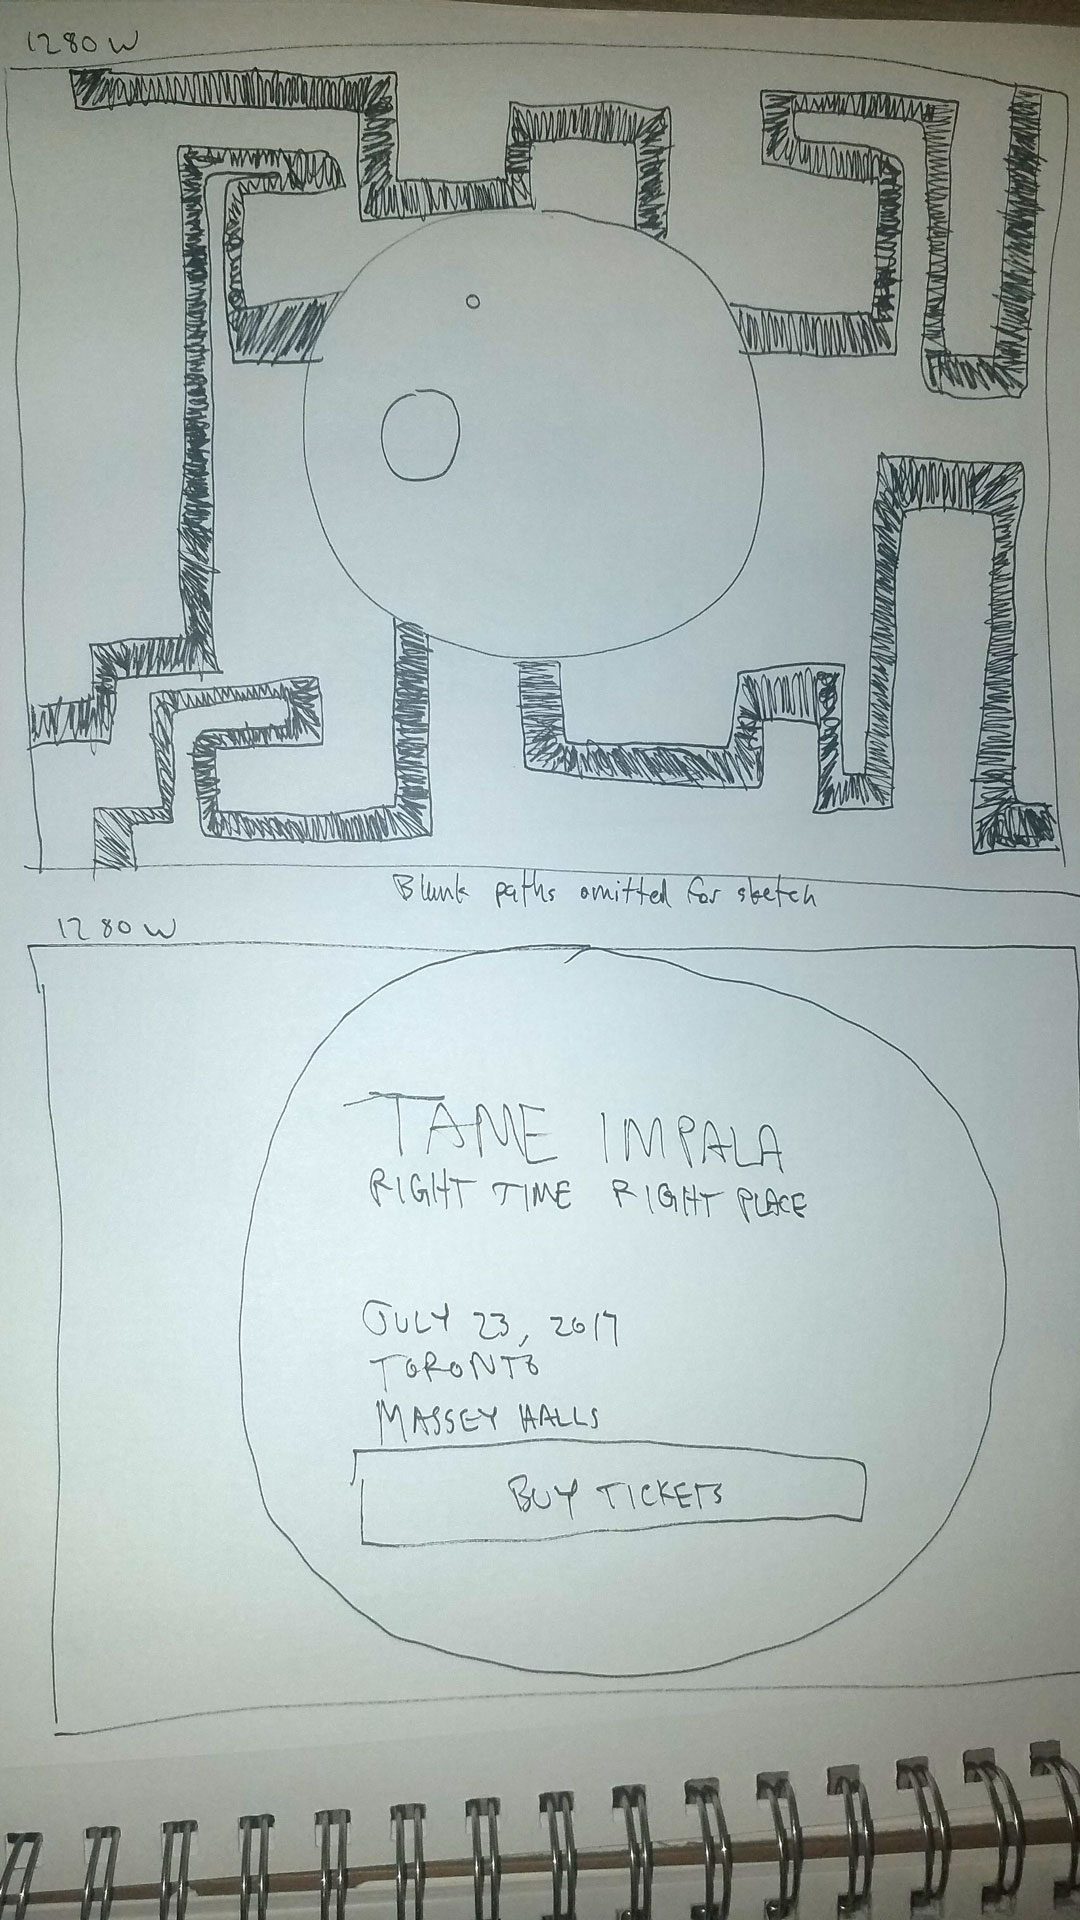 1280 W
Blank paths omitted for sketch
1280 W
TAME IMPALA
RIGHT TIME RIGHT PLACE
JULY 23, 2017
TORONTO
MASSEY HALLS
BUY TICKETS